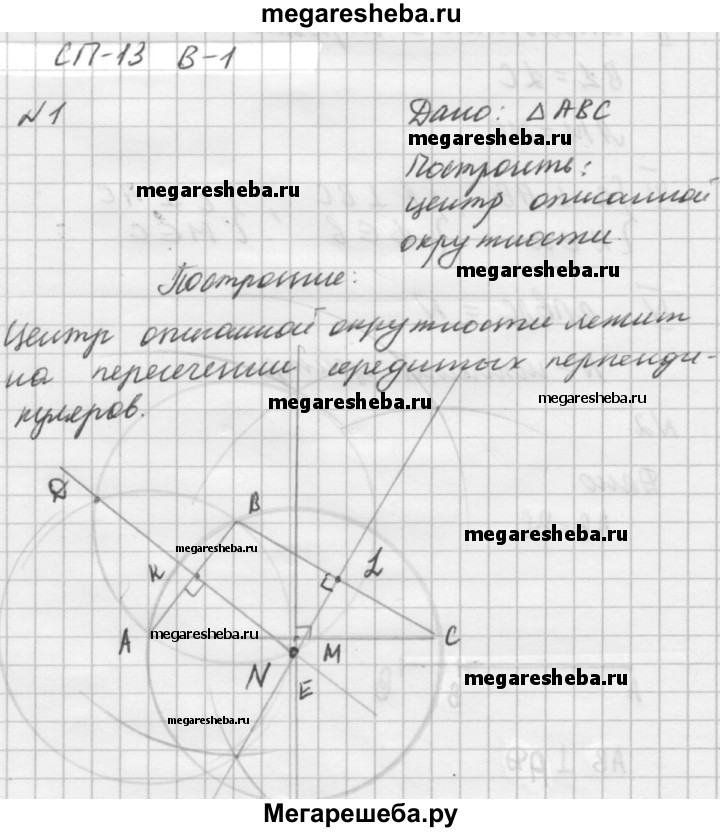 megaresheba.ru
СП-13 В-1
№1
Дано: △ABC
megaresheba.ru
Построить:
megaresheba.ru
центр описанной
окружности
megaresheba.ru
Построение:
Центр описанной окружности лежит
на пересечении серединных перпенди-
megaresheba.ru
megaresheba.ru
куляров.
D
B
megaresheba.ru
megaresheba.ru
K
L
A
megaresheba.ru
M
C
N
E
megaresheba.ru
megaresheba.ru
Мегарешеба.ру